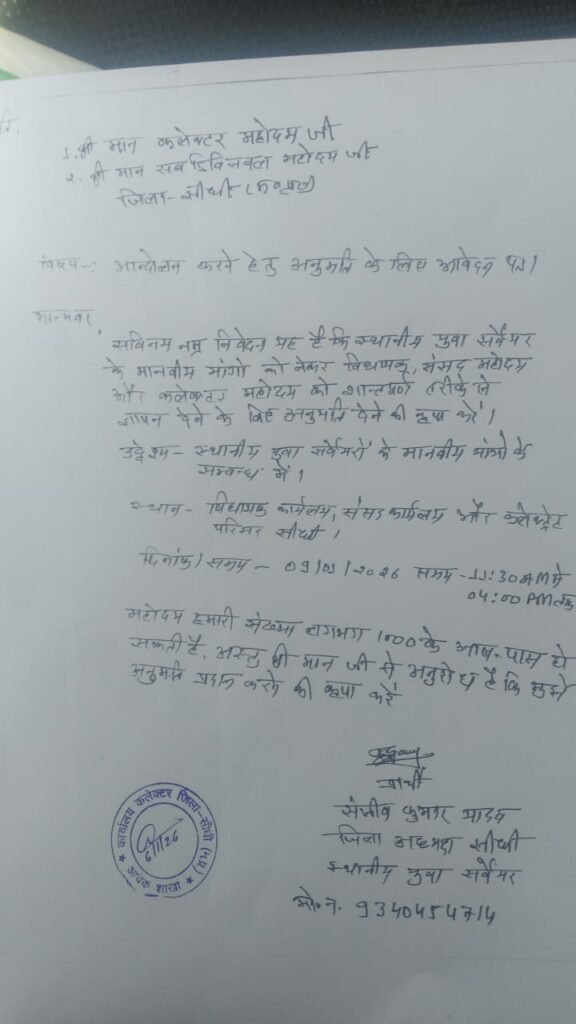 प्रति,
1. श्री मान कलेक्टर महोदय जी
2. श्री मान सब डिविजनल महोदय जी
जिला - सीधी (म०प्र०)
विषय -: आन्दोलन करने हेतु अनुमति के लिए आवेदन पत्र।
मान्यवर,
सविनय नम्र निवेदन यह है कि स्थानीय युवा सर्वेयर
के मानवीय मांगो को लेकर विधायक, संसद महोदय
और कलेक्टर महोदय को शान्तपूर्ण तरीके से
ज्ञापन देने के लिए अनुमति देने की कृपा करें।
उद्देश्य - स्थानीय युवा सर्वेयरों के मानवीय मांगो के
सम्बन्ध में।
स्थान - विधायक कार्यालय, संसद कार्यालय और कलेक्ट्रेट
परिसर सीधी।
दिनांक/समय - 09/01/2026 समय - 11:30AM से
04:00 PM तक
महोदय हमारी संख्या लगभग 1000 के आस-पास हो
सकती है, अस्तु श्री मान जी से अनुरोध है कि मुझे
अनुमति प्रदान करने की कृपा करें
प्रार्थी
संजीव कुमार यादव
जिला अध्यक्ष सीधी
स्थानीय युवा सर्वेयर
मो. न. 9340454714
कार्यालय कलेक्टर जिला-सीधी (म.प्र.)
6/1/26
आवक शाखा